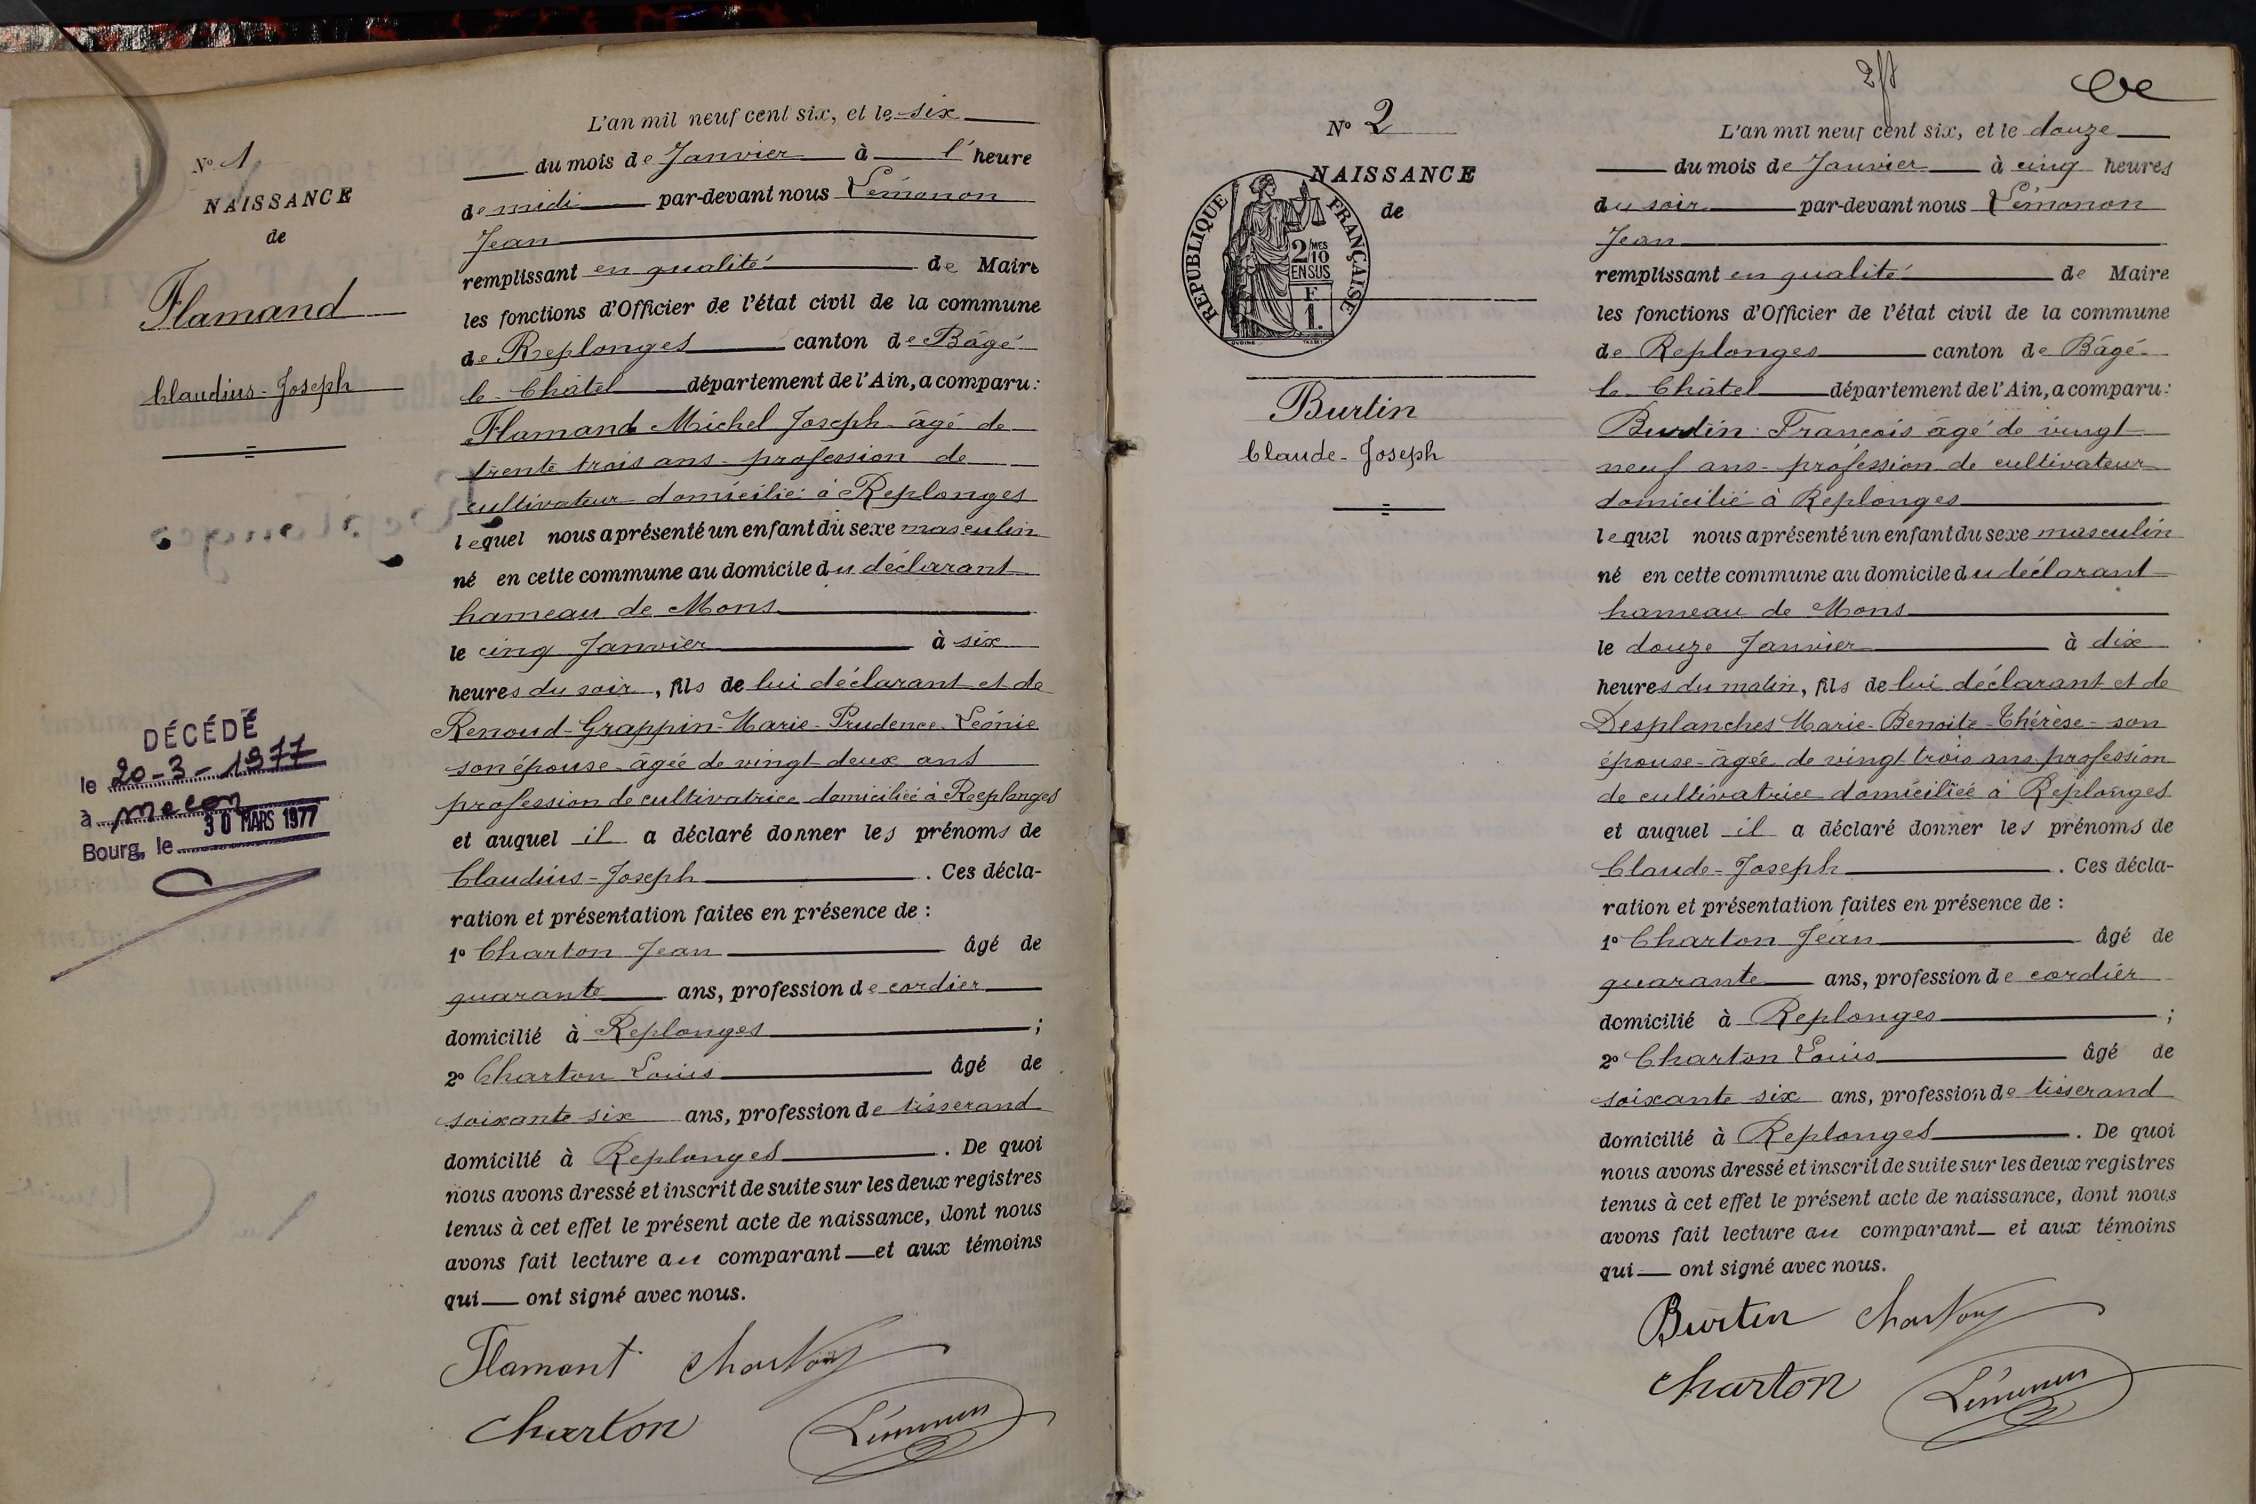 N° 1
NAISSANCE
de
Flamand
Claudius-Joseph
DÉCÉDÉ
le 20-3-1977
à Macon
30 MARS 1977
Bourg, le
L'an mil neuf cent six, et le six
du mois de Janvier à l'heure
de midi par-devant nous Lémonon
Jean
remplissant en qualité de Maire
les fonctions d'Officier de l'état civil de la commune
de Replonges canton de Bâgé
le Châtel département de l'Ain, a comparu:
Flamand Michel Joseph âgé de
trente trois ans profession de
cultivateur domicilié à Replonges
lequel nous a présenté un enfant du sexe masculin
né en cette commune au domicile du déclarant
hameau de Mons
le cinq Janvier à six
heures du soir, fils de lui déclarant et de
Renoud-Grappin-Marie-Prudence-Léonie
son épouse âgée de vingt deux ans
profession de cultivatrice domiciliée à Replonges
et auquel il a déclaré donner les prénoms de
Claudius-Joseph. Ces décla-
ration et présentation faites en présence de :
1° Charton Jean âgé de
quarante ans, profession de cordier
domicilié à Replonges ;
2° Charton Louis âgé de
soixante six ans, profession de tisserand
domicilié à Replonges. De quoi
nous avons dressé et inscrit de suite sur les deux registres
tenus à cet effet le présent acte de naissance, dont nous
avons fait lecture au comparant et aux témoins
qui ont signé avec nous.
Flamant Charton
Charton Lémonon
N° 2
NAISSANCE
de
REPUBLIQUE FRANÇAISE
2/MES
10
EN SUS
F
1.
Burtin
Claude-Joseph
L'an mil neuf cent six, et le douze
du mois de Janvier à cinq heures
du soir par-devant nous Lémonon
Jean
remplissant en qualité de Maire
les fonctions d'Officier de l'état civil de la commune
de Replonges canton de Bâgé
le Châtel département de l'Ain, a comparu:
Burtin François âgé de vingt
neuf ans profession de cultivateur
domicilié à Replonges
lequel nous a présenté un enfant du sexe masculin
né en cette commune au domicile du déclarant
hameau de Mons
le douze Janvier à dix
heures du matin, fils de lui déclarant et de
Desplanches Marie-Benoite-Thérèse-son
épouse-âgée de vingt trois ans profession
de cultivatrice domiciliée à Replonges
et auquel il a déclaré donner les prénoms de
Claude-Joseph. Ces décla-
ration et présentation faites en présence de :
1° Charton Jean âgé de
quarante ans, profession de cordier
domicilié à Replonges ;
2° Charton Louis âgé de
soixante six ans, profession de tisserand
domicilié à Replonges. De quoi
nous avons dressé et inscrit de suite sur les deux registres
tenus à cet effet le présent acte de naissance, dont nous
avons fait lecture au comparant et aux témoins
qui ont signé avec nous.
Burtin Charton
Charton Lémonon